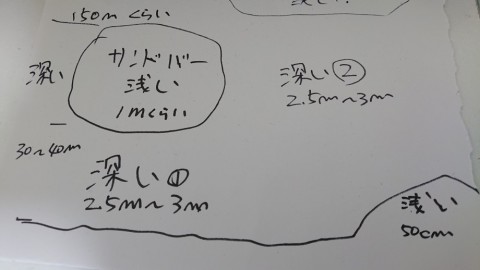 150mくらい
浅い
サンドバー
浅い
1mくらい
深い
深い②
2.5m〜3m
30〜40m
深い①
2.5m〜3m
浅い
50cm